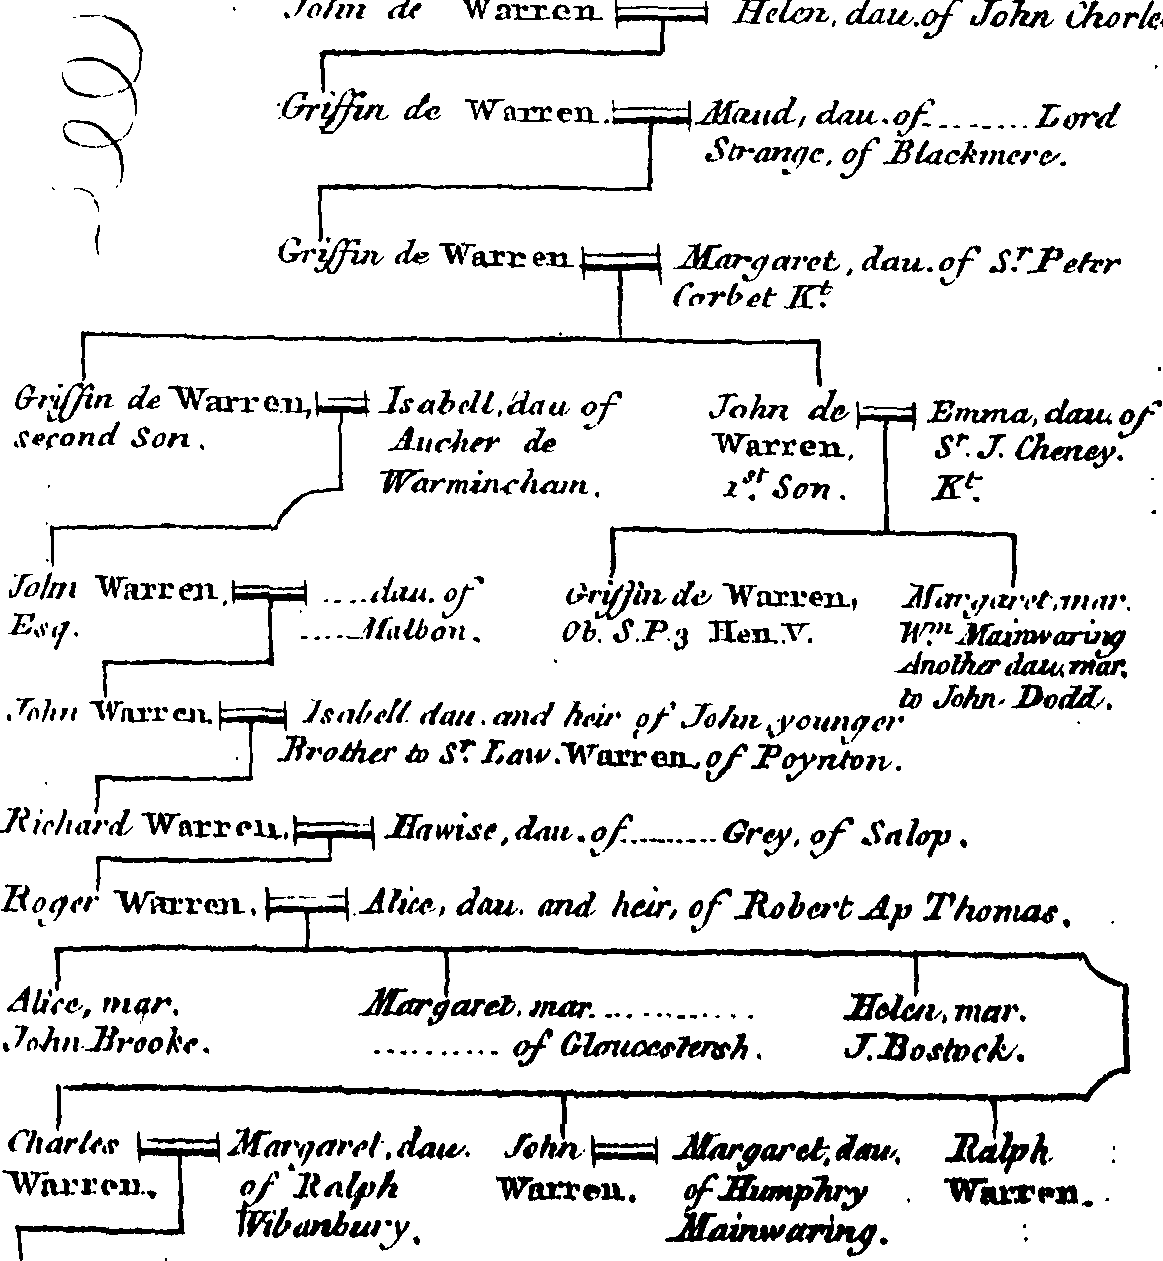 John de Warren Helen, dau. of John Chorle
Griffin de Warren. Maud, dau. of ........ Lord
Strange, of Blackmere.
Griffin de Warren Margaret, dau. of Sr. Peter
Corbet Kt.
Griffin de Warren,
second Son.
Isabell, dau of
Aucher de
Warmincham.
John de
Warren,
1st. Son.
Emma, dau. of
Sr. J. Cheney.
Kt.
John Warren,
Esq.
....dau. of
....Malbon.
Griffin de Warren,
Ob. S.P. 3 Hen. V.
Margaret, mar.
Wm. Mainwaring
Another dau, mar.
to John Dodd.
John Warren. Isabell dau. and heir of John, younger
Brother to Sr. Law. Warren, of Poynton.
Richard Warren. Hawise, dau. of ........ Grey, of Salop.
Roger Warren. Alice, dau. and heir, of Robert Ap Thomas.
Alice, mar.
John Brooke.
Margaret, mar. ............
.......... of Gloucestersh.
Helen, mar.
J. Bostock.
Charles
Warren.
Margaret, dau.
of Ralph
Wibanbury.
John
Warren.
Margaret, dau.
of Humphry
Mainwaring.
Ralph
Warren.